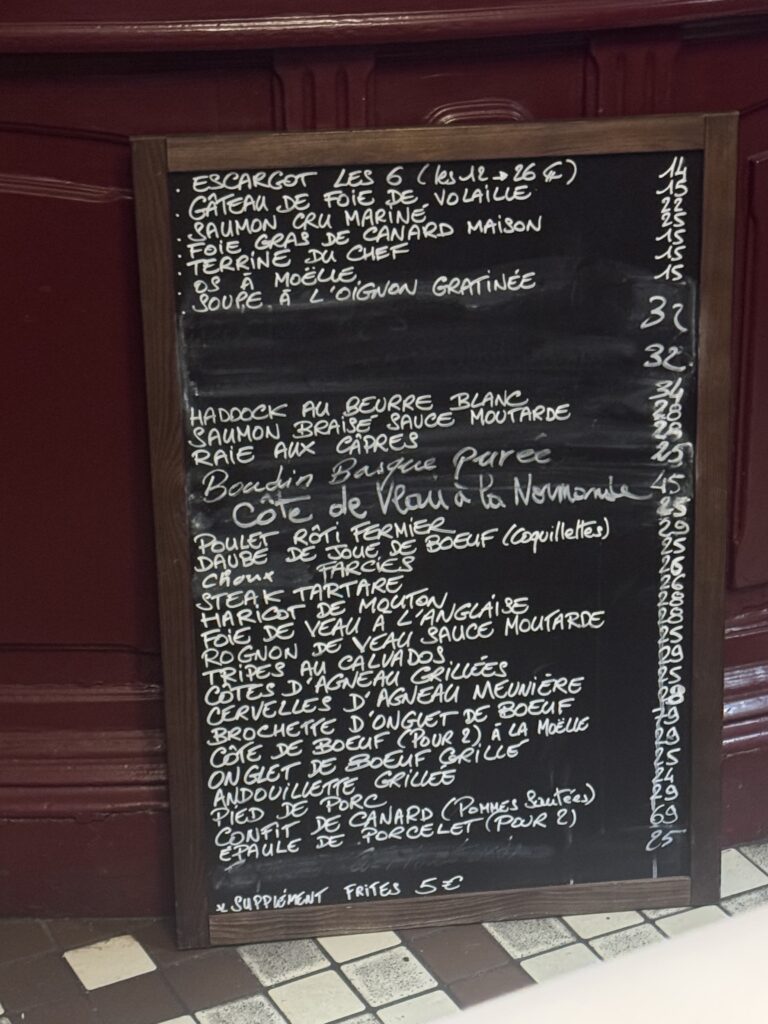 . ESCARGOT LES 6 (les 12 → 26 €) 14
. GÂTEAU DE FOIE DE VOLAILLE 15
. SAUMON CRU MARINÉ 22
. FOIE GRAS DE CANARD MAISON 25
. TERRINE DU CHEF 15
. OS À MOËLLE 15
. SOUPE À L'OIGNON GRATINÉE 15
32
32
HADDOCK AU BEURRE BLANC 34
SAUMON BRAISÉ SAUCE MOUTARDE 28
RAIE AUX CÂPRES 29
Boudin Basque purée 25
Côte de Veau à la Normande 45
POULET RÔTI FERMIER 25
DAUBE DE JOUE DE BOEUF (Coquillettes) 29
CHOUX FARCIES 25
STEAK TARTARE 26
HARICOT DE MOUTON 26
FOIE DE VEAU A L'ANGLAISE 28
ROGNON DE VEAU SAUCE MOUTARDE 28
TRIPES AU CALVADOS 25
CÔTES D'AGNEAU GRILLÉES 29
CERVELLES D'AGNEAU MEUNIÈRE 25
BROCHETTE D'ONGLET DE BOEUF 28
CÔTE DE BOEUF (POUR 2) À LA MOËLLE 79
ONGLET DE BOEUF GRILLÉ 29
ANDOUILLETTE GRILLÉE 25
PIED DE PORC 24
CONFIT DE CANARD (POMMES Sautées) 29
ÉPAULE DE PORCELET (POUR 2) 69
25
* SUPPLÉMENT FRITES 5 €